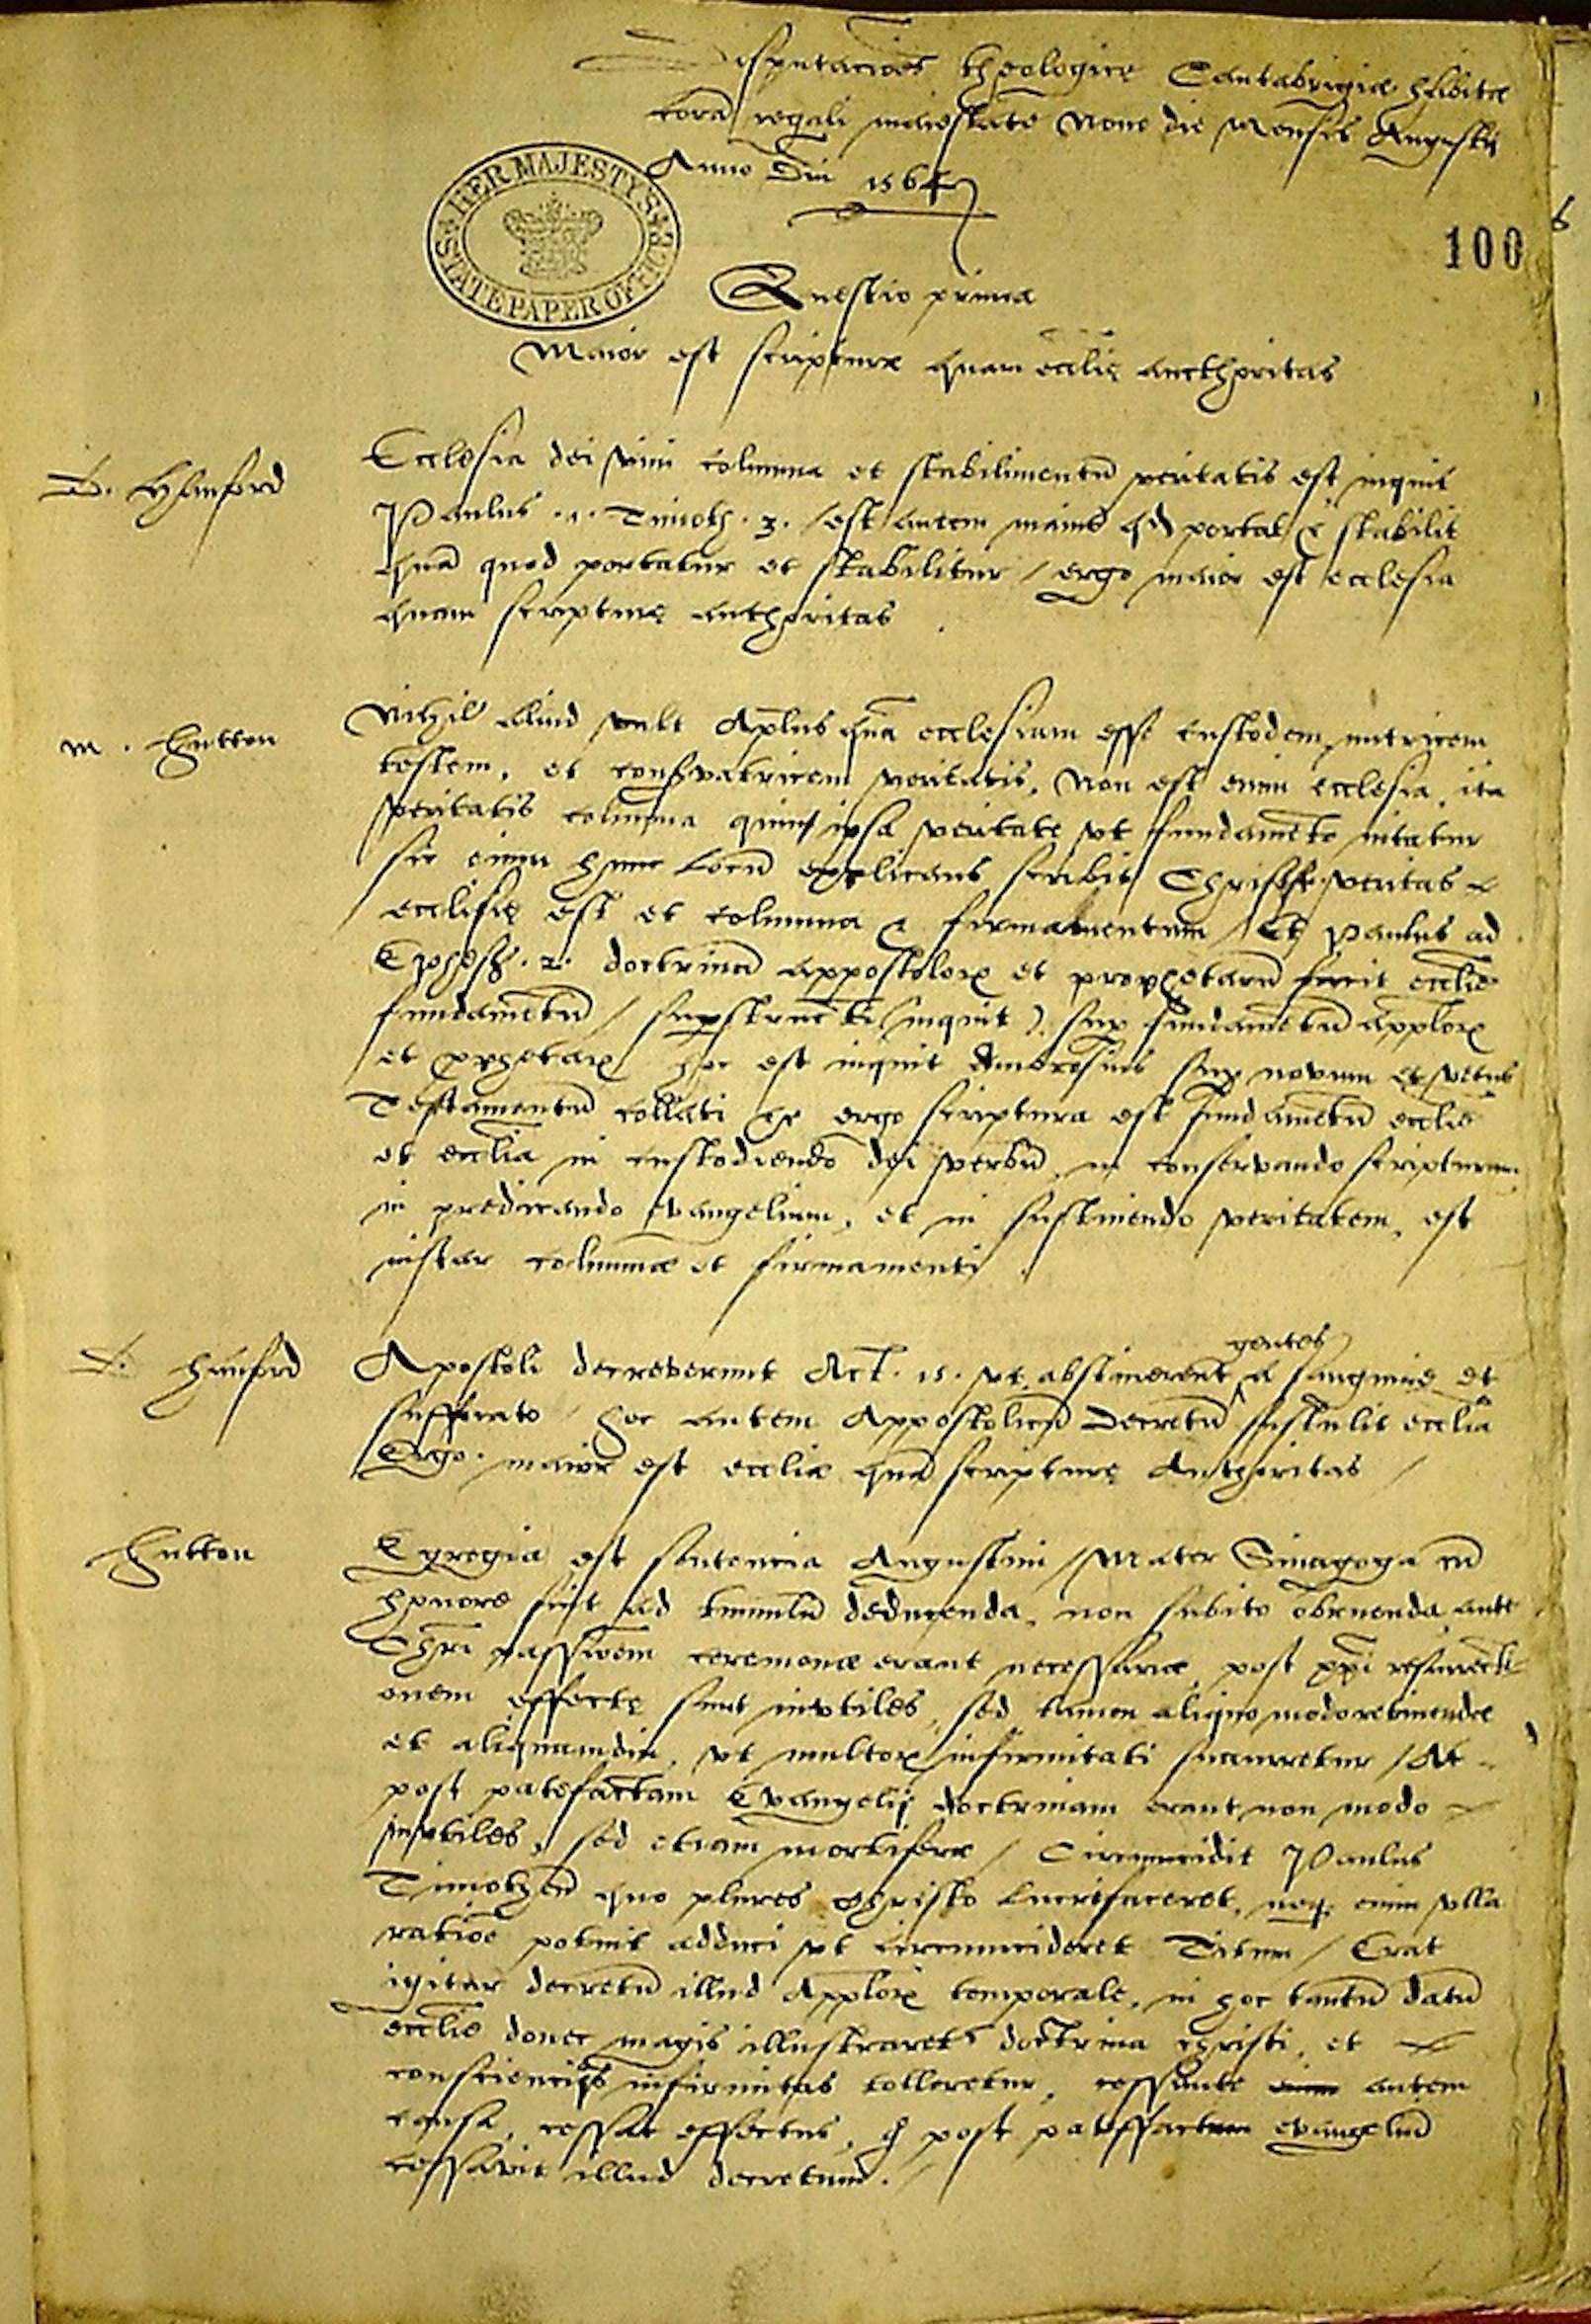 Disputaciones theologice Cantabrigiæ habitæ
corā regali maiestate nono die Mensis Augusti
Anno Dni 1564
HER MAJESTY'S STATE PAPER OFFICE
100
Questio prima
Maior est scripturæ quam ecclię aucthoritas
Ecclesia dei vivi columna et stabilimentū veritatis est inquit
Paulus .1. Timoth. 3. / est autem maius qd portat & stabilit
quā quod portatur et stabilitur / ergo maior est ecclesia
quam scripturę authoritas
m. Hutton
Nihil aliud vult Aplus quā ecclesiam esse custodem, nutricem
testem, et conservatricem veritatis, Non est enim ecclesia, ita
veritatis columna quin ipsa veritate vt fundamēto nitatur
sic enim hunc locū explicans scribit veritas
ecclesię est et columna & firmamentum / Et Paulus ad
Ephes. 2. doctrinā appostolorū et prophetarū facit ecclīe
fundamētū / supstructi (inquit) sup fundamētū applorū
et pphetarū hoc est inquit Ambrosius sup novum et vetus
Testamentū collati ergo scriptura est fundamētū ecclīe
et ecclīa in custodiendo dei verbū, in conservando scripturam
in predicando evangelium, et in sustinendo veritatem, est
instar columnæ et firmamenti.
Apostoli decreverunt Act. 15. vt abstinerent gentes a sanguine et
suffocato / hoc autem Appostolicū Decretū sustulit ecclīa
Ergo maior est eccliæ quā scripturę Authoritas /
Hutton
Egregia est sentencia Augustini / Mater Sinagoga cū
honore fuit ad tumulū deducenda, non subito obruenda ante
Chri passionem ceremoniæ erant necessariæ, post xpi resurrecti
onem effectę sunt invtiles, sed tamen aliquo modo retinendæ
et aliquamdiu, vt multorū infirmitati / At
post patefactam Evangelij doctrinam erant non modo
invtiles, sed etiam mortiferæ / Circumcidit Paulus
Timotheū quo plures Christo lucrifaceret, neq; enim vlla
ratioē potuit adduci vt circumcideret Titum / Erat
igitur decretū illud Applorū temporale, in hoc tantū datū
ecclīe donec magis illustraret doctrina christi, et
infirmitas tolleretur, cessante autem
causa, cessat effectus, post evangeliū
cessavit illud decretum.